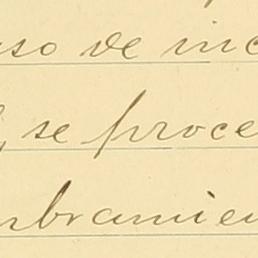 uso de inc
, se proce
mbramien